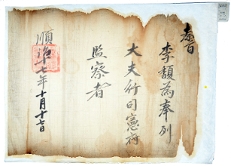 教旨
李 為奉列
大夫行司憲府
監察者
順治七年十月十七日